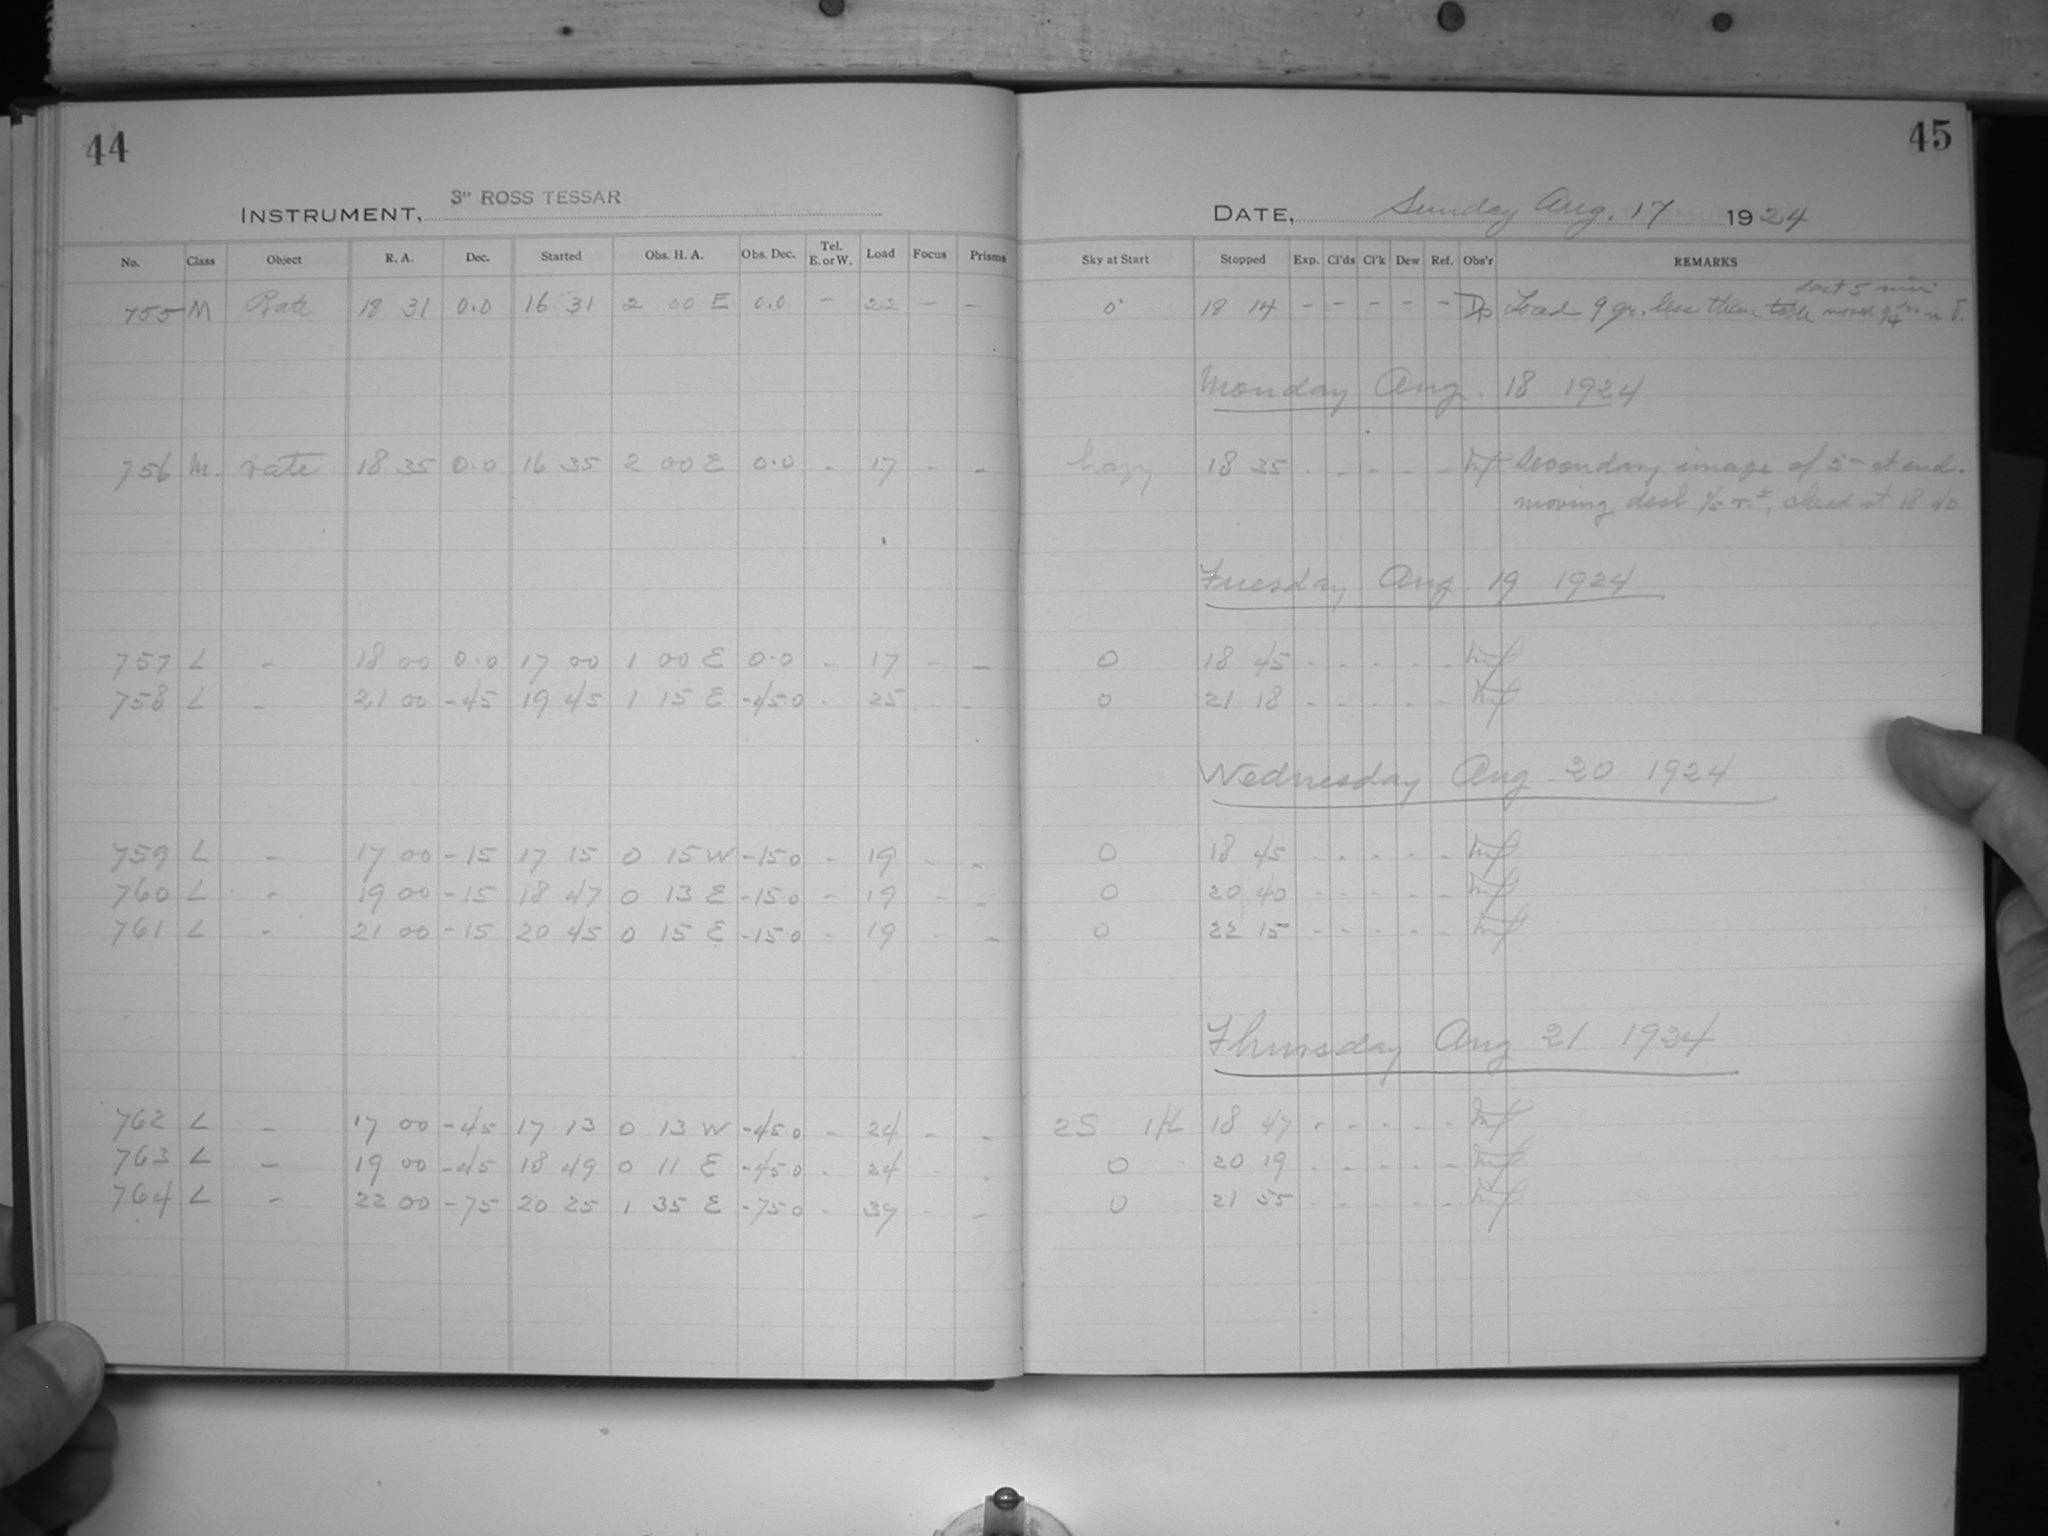 44
INSTRUMENT, 3" ROSS TESSAR
No. Class Object R. A. Dec. Started Obs. H. A. Obs. Dec. Tel. E. or W. Load Focus Prisms
755 M Rate 18 31 0.0 16 31 2 00 E 0.0 - 22 - -
756 M. rate 18 35 0.0 16 35 2 00 E 0.0 - 17 - -
757 L - 18 00 0.0 17 00 1 00 E 0.0 - 17 - -
758 L - 21 00 -45 19 45 1 15 E -45.0 - 25 - -
759 L - 17 00 -15 17 15 0 15 W -15.0 - 19 - -
760 L - 19 00 -15 18 47 0 13 E -15.0 - 19 - -
761 L - 21 00 -15 20 45 0 15 E -15.0 - 19 - -
762 L - 17 00 -45 17 13 0 13 W -45.0 - 24 - -
763 L - 19 00 -45 18 49 0 11 E -45.0 - 24 - -
764 L - 22 00 -75 20 25 1 35 E -75.0 - 39 - -
45
DATE, Sunday Aug. 17 1924
Sky at Start Stopped Exp. Cl'ds Cl'k Dew Ref. Obs'r REMARKS
last 5 min
0 18 14 - - - - - Load 9 gr. less than table moved
Monday Aug. 18 1924
hazy 18 35 - - - - - Secondary image of 5m at end.
moving desk closed at 18 40
Tuesday Aug. 19 1924
0 18 45 - - - - -
0 21 18 - - - - -
Wednesday Aug. 20 1924
0 18 45 - - - - -
0 20 40 - - - - -
0 22 15 - - - - -
Thursday Aug 21 1924
2S 18 47 - - - - -
0 20 19 - - - - -
0 21 55 - - - - -